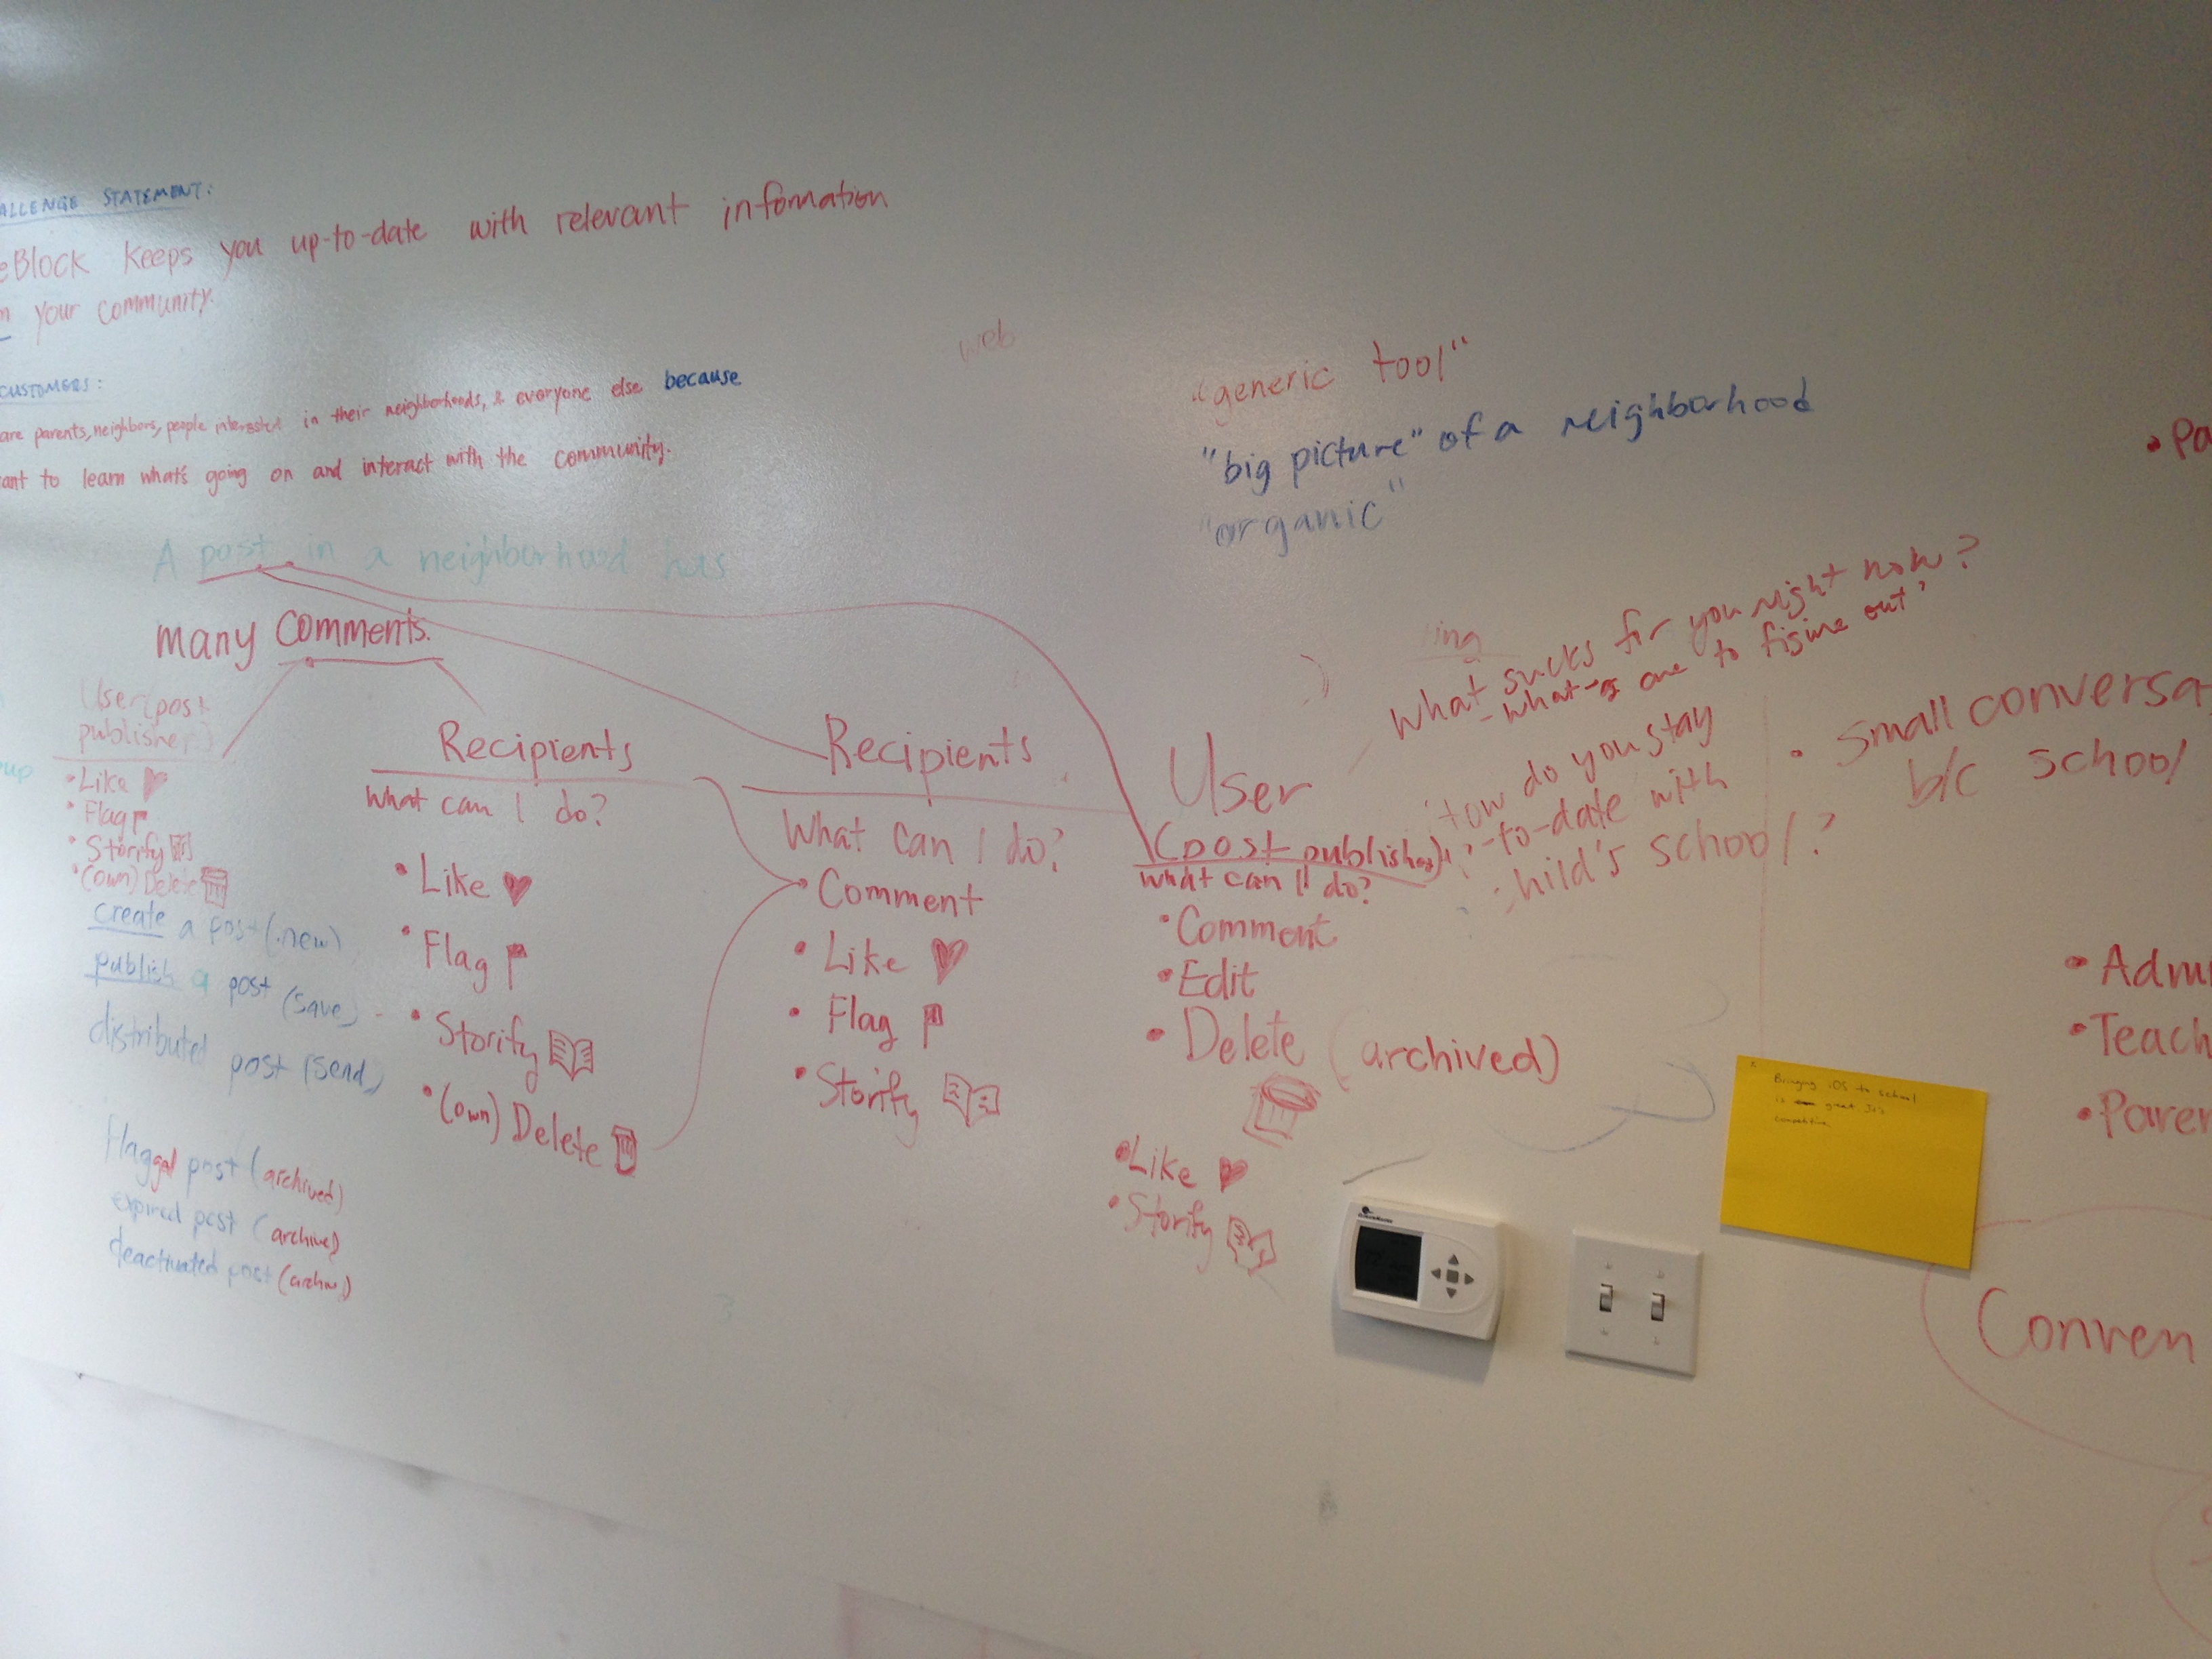 ALLENGE STATEMENT:
eBlock keeps you up-to-date with relevant infomation
your community.
CUSTOMERS:
are parents, neighbors, people interested in their neighborhoods, & everyone else because
ant to learn what's going on and interact with the community.
web
"generic tool"
"big picture" of a neighborhood
"organic"
A post in a neighborhood has
many comments.
User (post
publisher)
• Like
• Flag
• Storify
• (own) Delete
create a post (.new)
publish a post (save)
distributed post (send)
flagged post (archived)
expired post (archive)
deactivated post (archive)
Recipients
What can I do?
• Like
• Flag
• Storify
• (own) Delete
Recipients
What can I do?
• Comment
• Like
• Flag
• Storify
User
(post publisher)
What can I do?
• Comment
• Edit
• Delete (archived)
• Like
• Storify
ing
What sucks for you right now?
How do you stay
-to-date with
hild's school?
• Small conversa
b/c school
• Pa
• Admi
• Teach
• Paren
Bringing iOS to school
is great
Conven